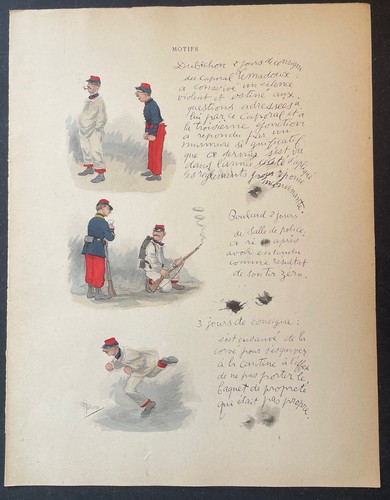 MOTIFS
Dubichon 2 jours de consigne
du Caporal
a conservé un silence
violent et obstiné aux
questions adressées à
lui par le Caporal et à
la troisième
a répondu par un
murmure si significatif
que ce dernier s'est vu
dans l'année
les règlements pour réponse
murmurante.
Boulard 2 jours
de salle de police,
a ri après
avoir entendu
comme résultat
de son tir zéro.
3 jours de consigne :
s'est ensauvé de la
corvée pour s'esquiver
à la Cantine à l'effet
de ne pas porter le
baquet de propreté
qui était pas propre.